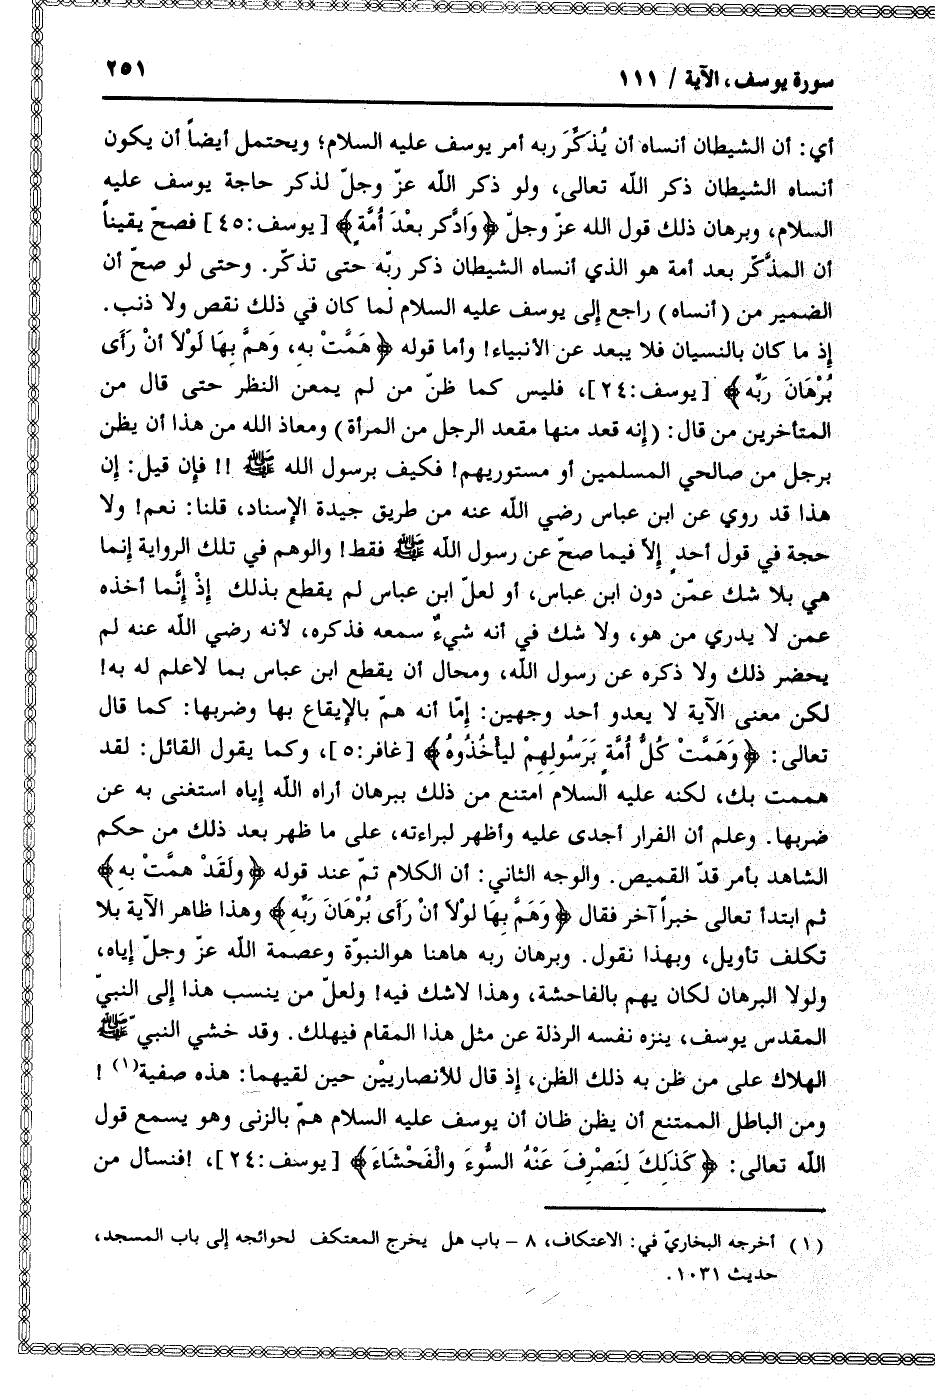 سورة يوسف، الآية / ١١١
٢٥١
أي: أن الشيطان أنساه أن يُذكِّرَ ربه أمر يوسف عليه السلام؛ ويحتمل أيضاً أن يكون
أنساه الشيطان ذكر الله تعالى، ولو ذكر الله عزّ وجلّ لذكر حاجة يوسف عليه
السلام، وبرهان ذلك قول الله عز وجلّ ﴿وَادَّكر بعْدَ أُمَّةٍ﴾ [يوسف:٤٥] فصحّ يقيناً
أن المذَّكّر بعد أمة هو الذي أنساه الشيطان ذكر ربّه حتى تذكّر. وحتى لو صحّ أن
الضمير من (أنساه) راجع إلى يوسف عليه السلام لما كان في ذلك نقص ولا ذنب.
إذ ما كان بالنسيان فلا يبعد عن الأنبياء! وأما قوله ﴿هَمَّتْ بِهِ، وَهمَّ بِهَا لَوْلاَ أنْ رَأَى
بُرْهَانَ رَبِّه﴾ [يوسف:٢٤]، فليس كما ظنّ من لم يمعن النظر حتى قال من
المتأخرين من قال: (إنه قعد منها مقعد الرجل من المرأة) ومعاذ الله من هذا أن يظن
برجل من صالحي المسلمين أو مستوريهم! فكيف برسول الله ﷺ !! فإن قيل: إن
هذا قد روي عن ابن عباس رضي الله عنه من طريق جيدة الإسناد، قلنا: نعم! ولا
حجة في قول أحدٍ إلاّ فيما صحّ عن رسول الله ﷺ فقط! والوهم في تلك الرواية إنما
هي بلا شك عمّن دون ابن عباس، أو لعلّ ابن عباس لم يقطع بذلك إذْ إنَّما أخذه
عمن لا يدري من هو، ولا شك في أنه شيءٌ سمعه فذكره، لأنه رضي الله عنه لم
يحضر ذلك ولا ذكره عن رسول الله، ومحال أن يقطع ابن عباس بما لاعلم له به!
لكن معنى الآية لا يعدو أحد وجهين: إمّا أنه همّ بالإيقاع بها وضربها: كما قال
تعالى: ﴿وَهَمَّتْ كُلُّ أُمَّةٍ بَرَسُولِهِمْ ليأْخُذُوهُ﴾ [غافر:٥]، وكما يقول القائل: لقد
هممت بك، لكنه عليه السلام امتنع من ذلك ببرهان أراه الله إياه استغنى به عن
ضربها. وعلم أن الفرار أجدى عليه وأظهر لبراءته، على ما ظهر بعد ذلك من حكم
الشاهد بأمر قدّ القميص. والوجه الثاني: أن الكلام تمّ عند قوله ﴿ولَقَدْ همَّتْ بِهِ﴾
ثم ابتدأ تعالى خبراً آخر فقال ﴿وَهَمَّ بِهَا لوْلاَ أنْ رَأى بُرْهَانَ رَبِّه﴾ وهذا ظاهر الآية بلا
تكلف تأويل، وبهذا نقول. وبرهان ربه هاهنا هوالنبوّة وعصمة الله عزّ وجلّ إياه،
ولولا البرهان لكان يهم بالفاحشة، وهذا لاشك فيه! ولعلّ من ينسب هذا إلى النبيّ
المقدس يوسف، ينزه نفسه الرذلة عن مثل هذا المقام فيهلك. وقد خشي النبيّ ﷺ
الهلاك على من ظن به ذلك الظن، إذ قال للأنصارييْن حين لقيهما: هذه صفية(١) !
ومن الباطل الممتنع أن يظن ظان أن يوسف عليه السلام همّ بالزنى وهو يسمع قول
الله تعالى: ﴿كَذَلِكَ لِنَصْرِفَ عَنْهُ السُّوءَ وَالْفَحْشَاءَ﴾ [يوسف:٢٤]، !فنسأل من
(١) أخرجه البخاريّ في: الاعتكاف، ٨ – باب هل يخرج المعتكف لحوائجه إلى باب المسجد،
حديث ١٠٣١.